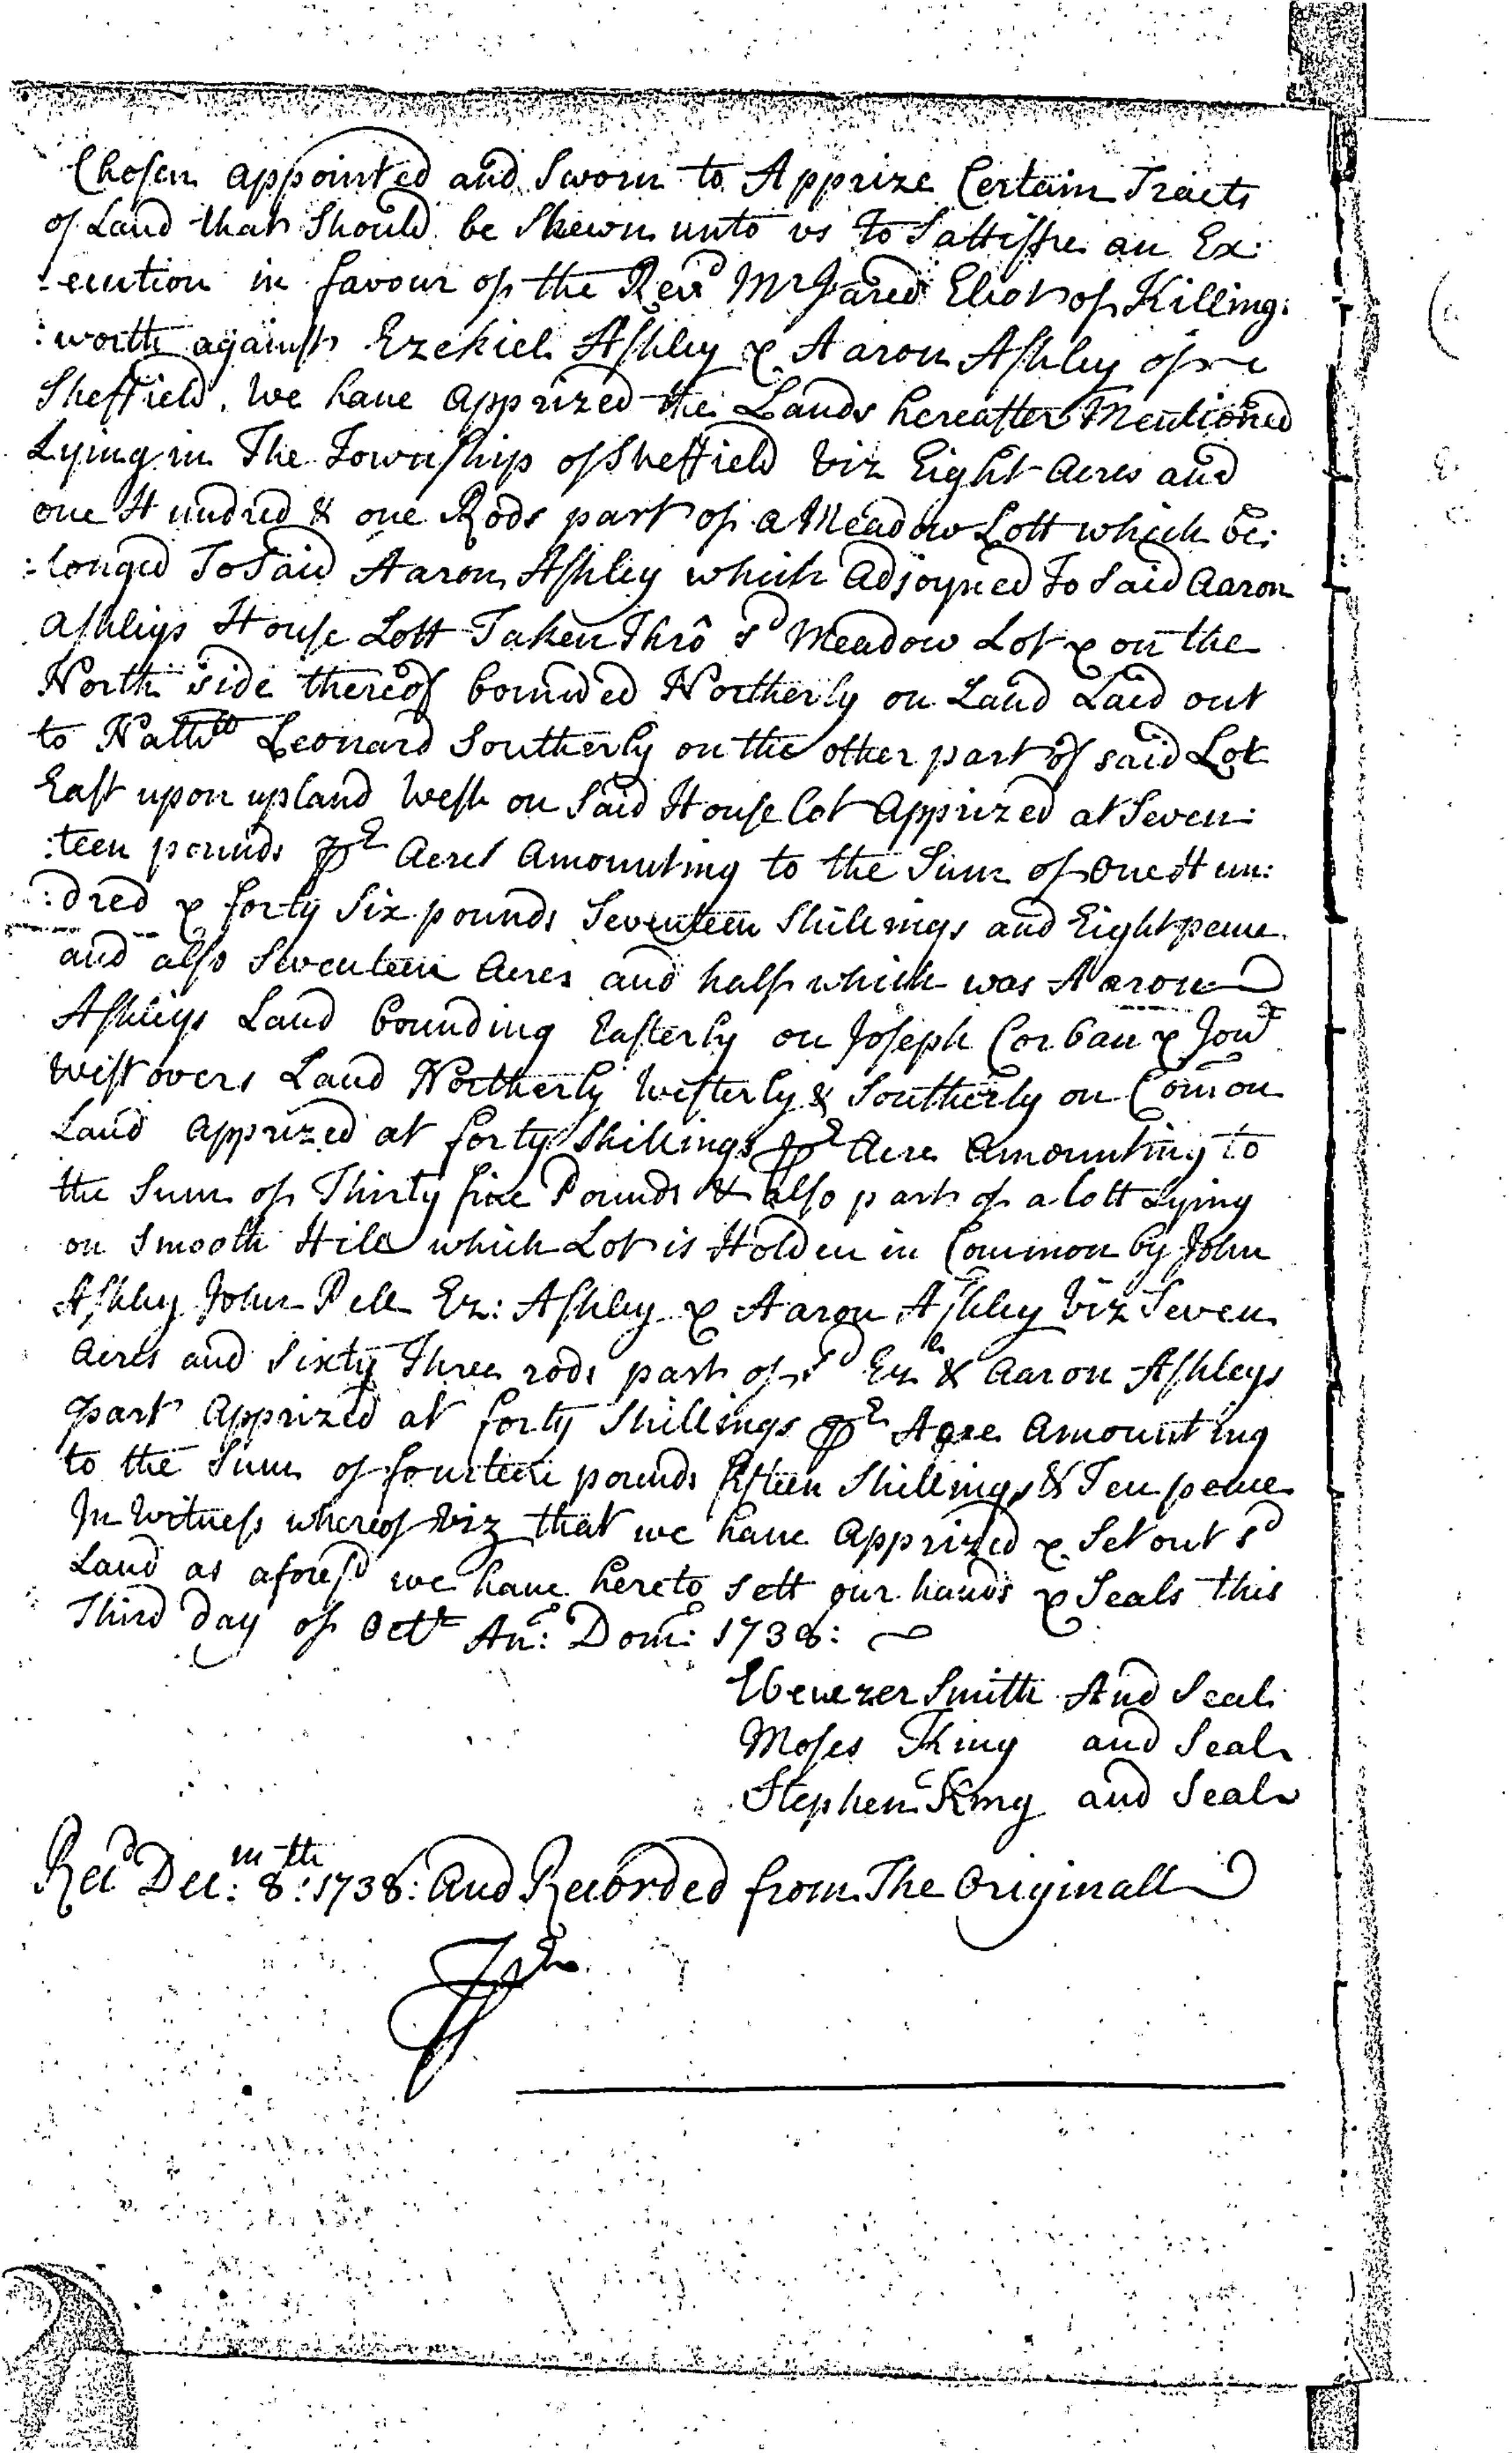 Chosen appointed and Sworn to Apprize Certain Tracts
of Land that Should be Shewn unto us To Sattisfie an Ex:
:ecution in favour of the Revd Mr Jared Eliot of Killing:
:worth against Ezekiel Ashley & Aaron Ashley of
Sheffield. We have apprized the Lands hereafter Mentioned
Lying in The Township of Sheffield Viz Eight Acres and
one Hundred & one Rods part of a Meadow Lott which be:
:longed To Said Aaron Ashley which adjoyned to Said Aaron
Ashleys House Lott Taken Thrô sd Meadow Lot & on the
North Side thereof bounded Northerly on Land Laid out
to Nathll Leonard Southerly on the other part of said Lot
East upon upland West on Said House lot Apprized at Seven:
:teen pounds pr Acre Amounting to the Sum of One Hun:
:dred & forty Six pounds Seventeen Shillings and Eight pence
and also Seventeen Acres and half which was Aaron
Ashleys Land bounding Easterly on Joseph Corban & Jond
Westovers Land Northerly Westerly & Southerly on Comon
Land apprized at forty Shillings pr Acre Amounting to
the Sum of Thirty five Pounds & also part of a lott Lying
on Smooth Hill which Lot is Holden in Common by John
Ashley John Pell Ez: Ashley & Aaron Ashley Viz Seven
Acres and Sixty Three rods part of sd Ez & Aaron Ashleys
part Apprized at forty Shillings pr Acre Amounting
to the Sum of fourteen pounds fifteen Shillings & Ten pence
In Witness whereof Viz that we have apprized & Set out sd
Land as aforesd we have hereto Sett our hands & Seals this
Third Day of Octr An: Dom: 1738:
Ebenezer Smith And Seal
Moses King and Seal
Stephen King and Seal
Recd Decm: 8th: 1738: And Recorded from The Originall
pr